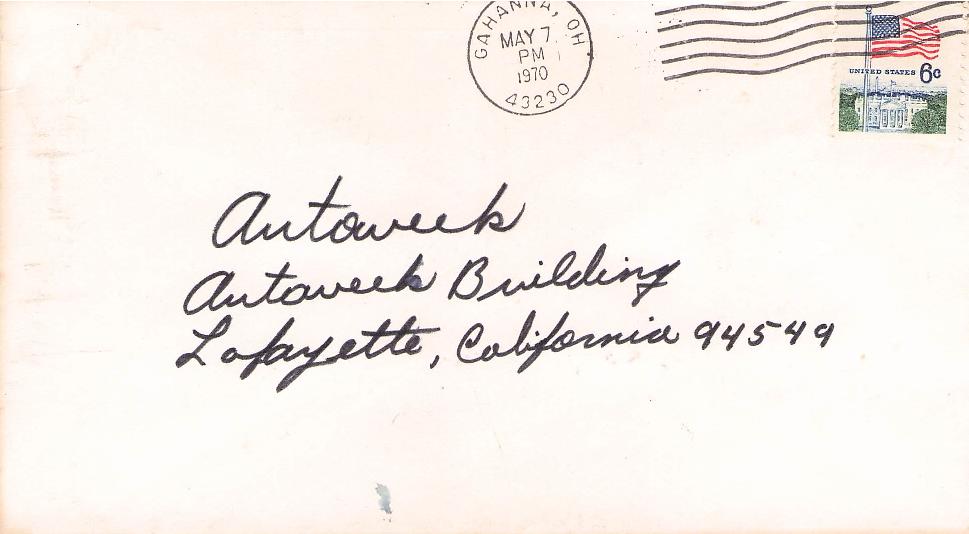 GAHANNA, OH
MAY 7
PM
1970
43230
UNITED STATES 6c
Autoweek
Autoweek Building
Lafayette, California 94549